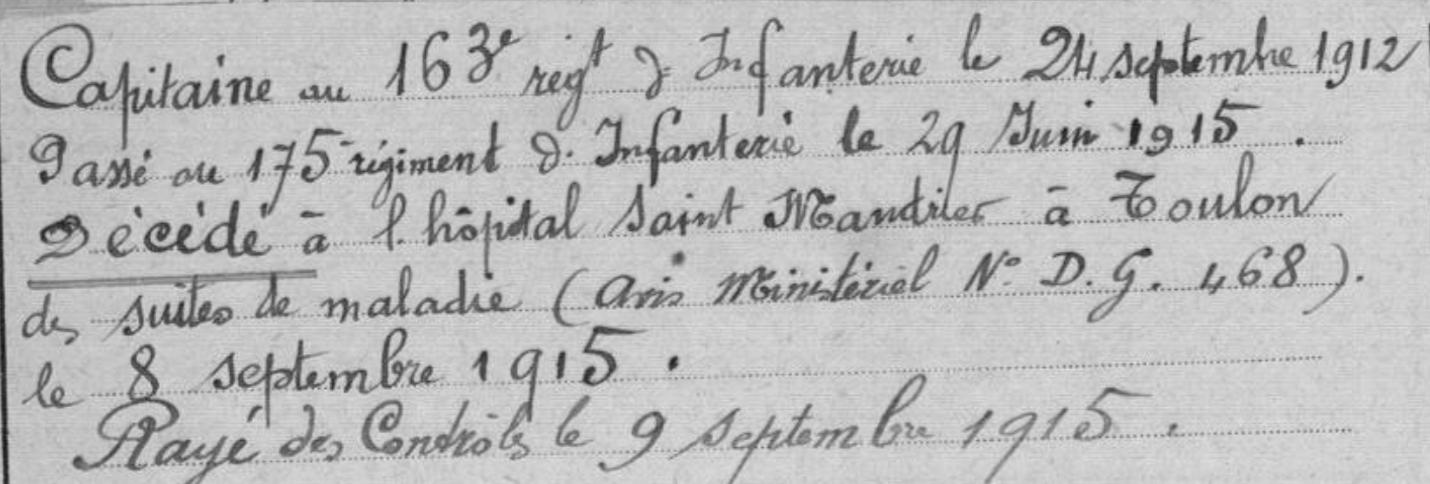 Capitaine au 163e régt d'Infanterie le 24 septembre 1912
Passé au 175 régiment d'Infanterie le 29 Juin 1915.
Décédé à l'hôpital Saint Mandrier à Toulon
des suites de maladie (avis Ministériel No D.G. 468).
le 8 septembre 1915.
Rayé des Contrôles le 9 septembre 1915.